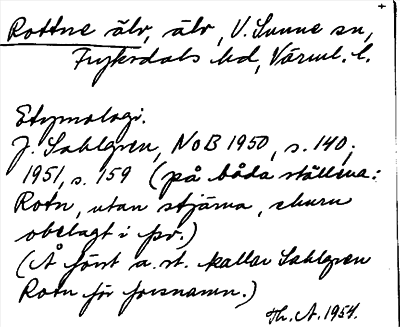 Rottne älv, älv, V. Sunne sn,
Fryksdals hd, Värml. l.
Etymologi.
J. Sahlgren, NoB 1950, s. 140;
1951, s. 159 (på båda ställena:
Rotn, utan stjärna, ehuru
obelagt i fsv.)
(Å först a. st. kallar Sahlgren
Rotn för forsnamn.)
Th. A. 1954.